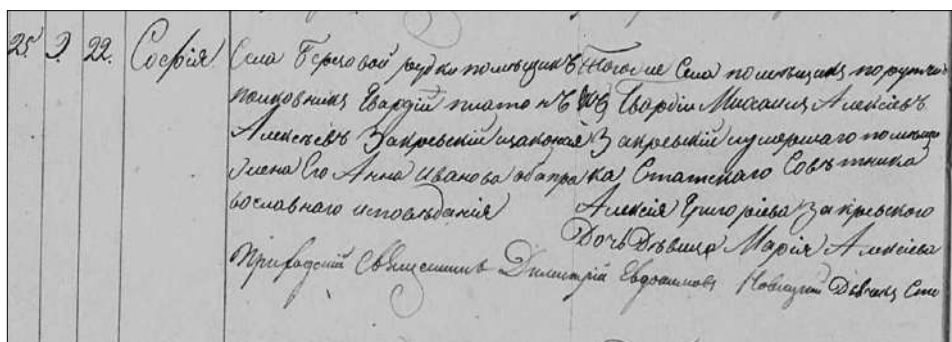 25. 2. 22. София Села Березовой рудки помѣщикъ Того же Села помѣщикъ поручикъ
полковникъ Гвардій Платонъ Гвардіи Михаилъ Алексѣевъ
Алексѣевъ Закревскій и законая Закревскій и умершаго помѣщи
жена Его Анна Иванова оба пра ка Статскаго Совѣтника
вославнаго исповѣданія Алексія Григоріева Закревского
Дочь Дѣвица Марія Алексіева
Приходскій Священникъ Димитрій Евдокимовъ